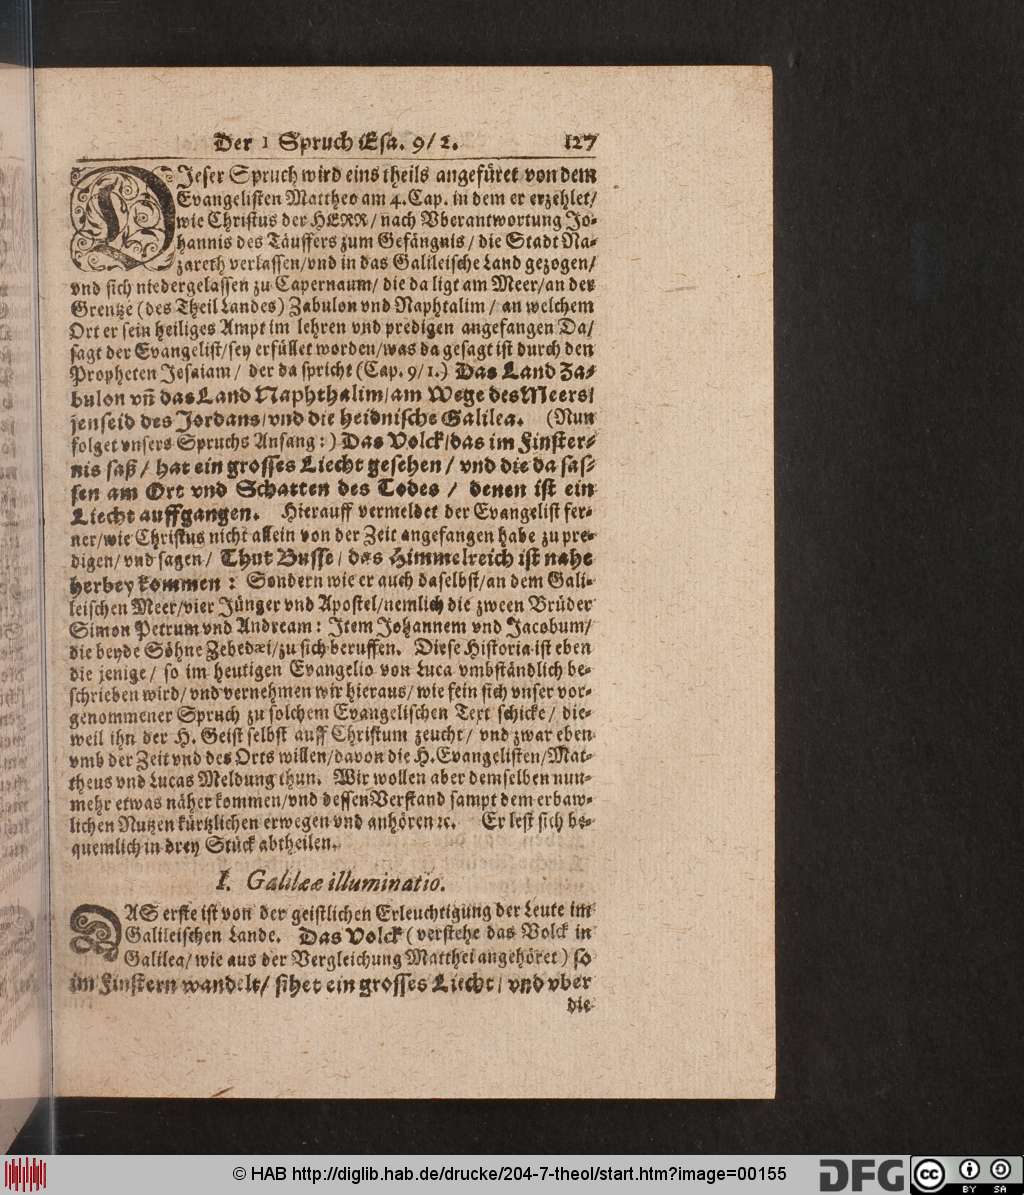 Der 1 Spruch Esa. 9/2. 127
DIeser Spruch wird eins theils angefüret von dem
Evangelisten Mattheo am 4. Cap. in dem er erzehlet/
wie Christus der HERR/ nach Vberantwortung Jo-
hannis des Täuffers zum Gefängnis/ die Stadt Na-
zareth verlassen/vnd in das Galileische Land gezogen/
vnd sich niedergelassen zu Capernaum/ die da ligt am Meer/an der
Grentze (des Theil Landes) Zabulon vnd Naphtalim/ an welchem
Ort er sein heiliges Ampt im lehren vnd predigen angefangen Da/
sagt der Evangelist/sey erfüllet worden/was da gesagt ist durch den
Propheten Jesaiam/ der da spricht (Cap. 9/1.) Das Land Za-
bulon vñ das Land Naphthalim/am Wege des Meers/
jenseid des Jordans/vnd die heidnische Galilea. (Nun
folget vnsers Spruchs Anfang:) Das Volck/das im Finster-
nis saß/ hat ein grosses Liecht gesehen/ vnd die da sas-
sen am Ort vnd Schatten des Todes/ denen ist ein
Liecht auffgangen. Hierauff vermeldet der Evangelist fer-
ner/wie Christus nicht allein von der Zeit angefangen habe zu pre-
digen/vnd sagen/ Thut Busse/ das Himmelreich ist nahe
herbey kommen: Sondern wie er auch daselbst/an dem Gali-
leischen Meer/vier Jünger vnd Apostel/nemlich die zween Brüder
Simon Petrum vnd Andream: Jtem Johannem vnd Jacobum/
die beyde Söhne Zebedæi/zu sich beruffen. Diese Historia ist eben
die jenige/ so im heutigen Evangelio von Luca vmbständlich be-
schrieben wird/ vnd vernehmen wir hieraus/ wie fein sich vnser vor-
genommener Spruch zu solchem Evangelischen Text schicke/ die-
weil ihn der H. Geist selbst auff Christum zeucht/ vnd zwar eben
vmb der Zeit vnd des Orts willen/davon die H. Evangelisten/Mat-
theus vnd Lucas Meldung thun. Wir wollen aber demselben nun-
mehr etwas näher kommen/vnd dessen Verstand sampt dem erbaw-
lichen Nutzen kürtzlichen erwegen vnd anhören ꝛc. Er lest sich be-
quemlich in drey Stück abtheilen.
I. Galilææ illuminatio.
DAS erste ist von der geistlichen Erleuchtigung der Leute im
Galileischen Lande. Das Volck (verstehe das Volck in
Galilea/ wie aus der Vergleichung Matthei angehöret) so
im Finstern wandelt/ sihet ein grosses Liecht/ vnd vber
die
© HAB http://diglib.hab.de/drucke/204-7-theol/start.htm?image=00155
DFG
cc BY SA